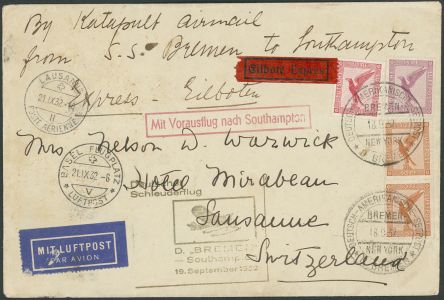 By Katapult airmail
from S.S. Bremen to Southampton
Eilbote Exprès
Express - Eilboten
LAUSANNE
21.IX.32
Mit Vorausflug nach Southampton
DEUTSCH-AMERIKANISCHE SEEPOST
BREMEN
18.9.32
NEW YORK
Mrs. Nelson D. Warwick
BASEL FLUGPLATZ
21.IX.32.-6
V
LUFTPOST
Hotel Mirabeau
Deutscher
Schleuderflug
Lausanne
D. „BREMEN"
– Southampton
19. September 1932
Switzerland
DEUTSCH-AMERIKANISCHE SEEPOST
BREMEN
18.9.32
NEW YORK
MIT LUFTPOST
PAR AVION